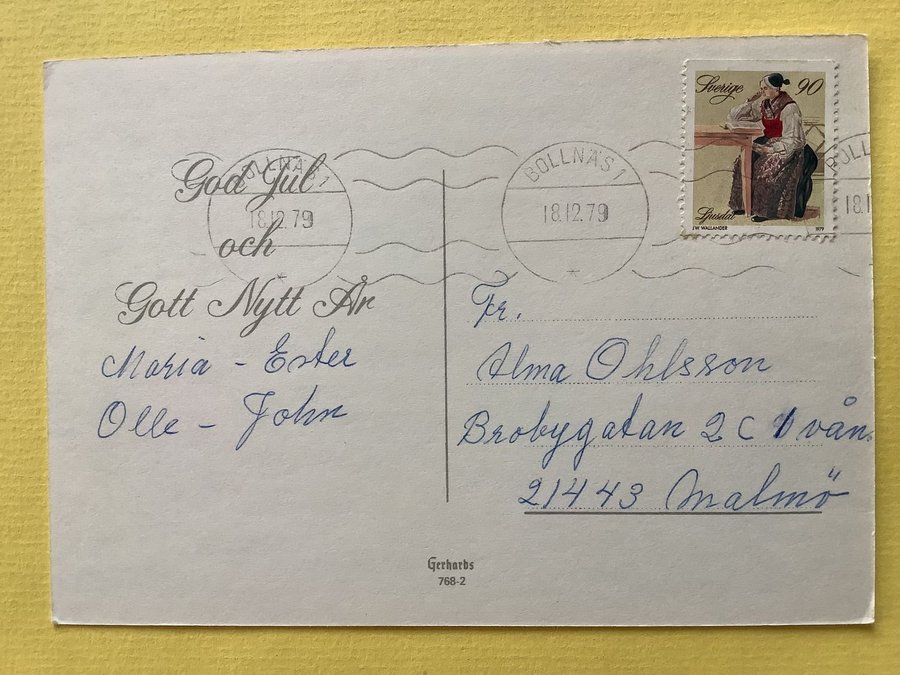 God Jul
och
Gott Nytt År
Maria - Ester
Olle - John
BOLLNÄS 1
18.12.79
BOLLNÄS 1
18.12.79
Sverige 90
Ljusdal
J W WALLANDER 1979
BOLL
18.1
Fr.
Alma Ohlsson
Brobygatan 2 C 1 vån.
214 43 Malmö
Gerhards
768-2